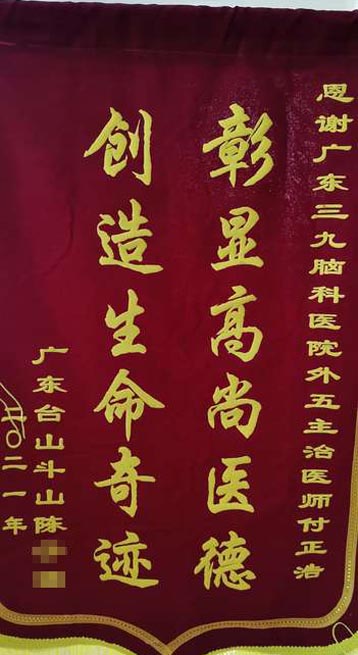 恩谢广东三九脑科医院外五主治医师付正浩
彰显高尚医德
创造生命奇迹
广东台山斗山陈
二〇二一年